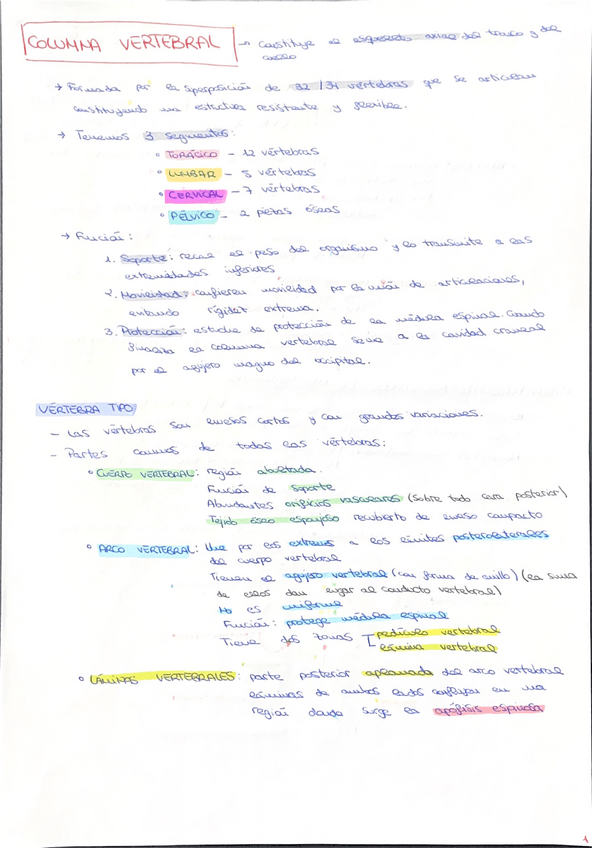 COLUMNA VERTEBRAL → Constituye el esqueleto axial del tronco y del
cuello
→ Formada por la superposición de 32/34 vértebras que se articulan
constituyendo una estructura resistente y flexible.
→ Tenemos 3 segmentos:
• TORÁCICO - 12 vértebras
• LUMBAR - 5 vértebras
• CERVICAL - 7 vértebras
• PÉLVICO - 2 piezas óseas
→ Función:
1. Soporte: recae el peso del organismo y lo transmite a las
extremidades inferiores
2. Movilidad: confieren movilidad por la unión de articulaciones,
evitando rigidez extrema.
3. Protección: estuche de protección de la médula espinal. Cuando
finaliza la columna vertebral se une a la cavidad craneal
por el agujero magno del occipital.
VÉRTEBRA TIPO
- Las vértebras son huesos cortos y con grandes variaciones.
- Partes comunes de todas las vértebras:
• CUERPO VERTEBRAL: región abultada.
Función de soporte
Abundantes orificios vasculares (sobre todo cara posterior)
Tejido óseo esponjoso recubierto de hueso compacto
• ARCO VERTEBRAL: Une por los extremos a los límites posterolaterales
del cuerpo vertebral
Tienen el agujero vertebral (con forma de anillo) (la suma
de ellos dan lugar al conducto vertebral)
No es uniforme
Función: protege médula espinal
Tiene dos zonas [ pedículo vertebral
lámina vertebral
• LÁMINAS VERTEBRALES: parte posterior aplanada del arco vertebral
láminas de ambos lados confluyen en una
región donde surge la apófisis espinosa
1